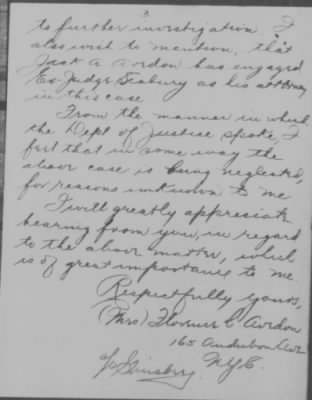 3
to further investigation. I
also wish to mention, that
Jack A Avrdon has engaged
Ex-Judge Seabury as his attorney
in this case
From the manner in which
the Dept of Justice spoke, I
feel that in some way the
above case is being neglected,
for reasons unknown to me
I will greatly appreciate
hearing from you, in regard
to the above matter, which
is of great importance to me.
Respectfully yours,
(Mrs) C Avrdon
165 Audubon Ave
N.Y.C.
Ginsberg